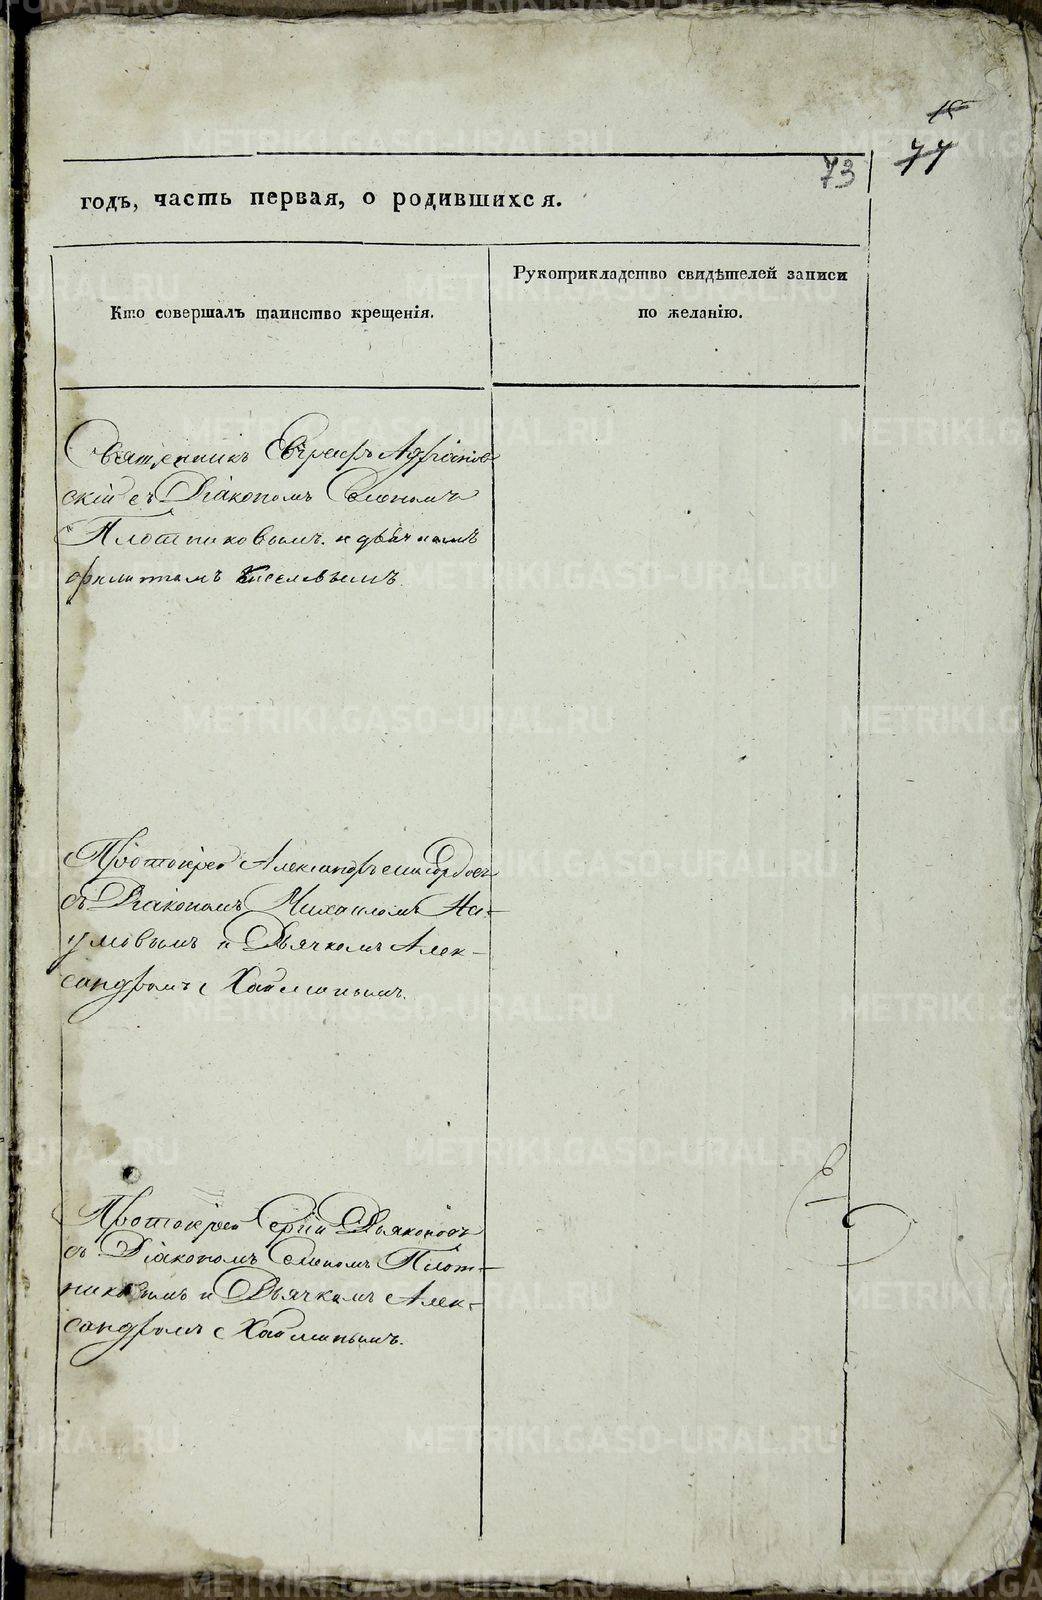 15
77
73
годъ, часть первая, о родившихся.
Кто совершалъ таинство крещенія.
Рукоприкладство свидѣтелей записи
по желанію.
Священникъ Адріанов
скій съ Діакономъ Семеномъ
Плотниковымъ и дьячкомъ
Филиппомъ Киселевымъ
Протоіерей Александръ
съ Діакономъ Михаиломъ На-
умовымъ и Дьячкомъ Алек-
сандромъ Хаеминымъ.
Протоіерей Сергій Дьяконовъ
съ Діакономъ Семеномъ Плот-
никовымъ и Дьячкомъ Алек-
сандромъ Хаеминымъ.
METRIKI.GASO-URAL.RU